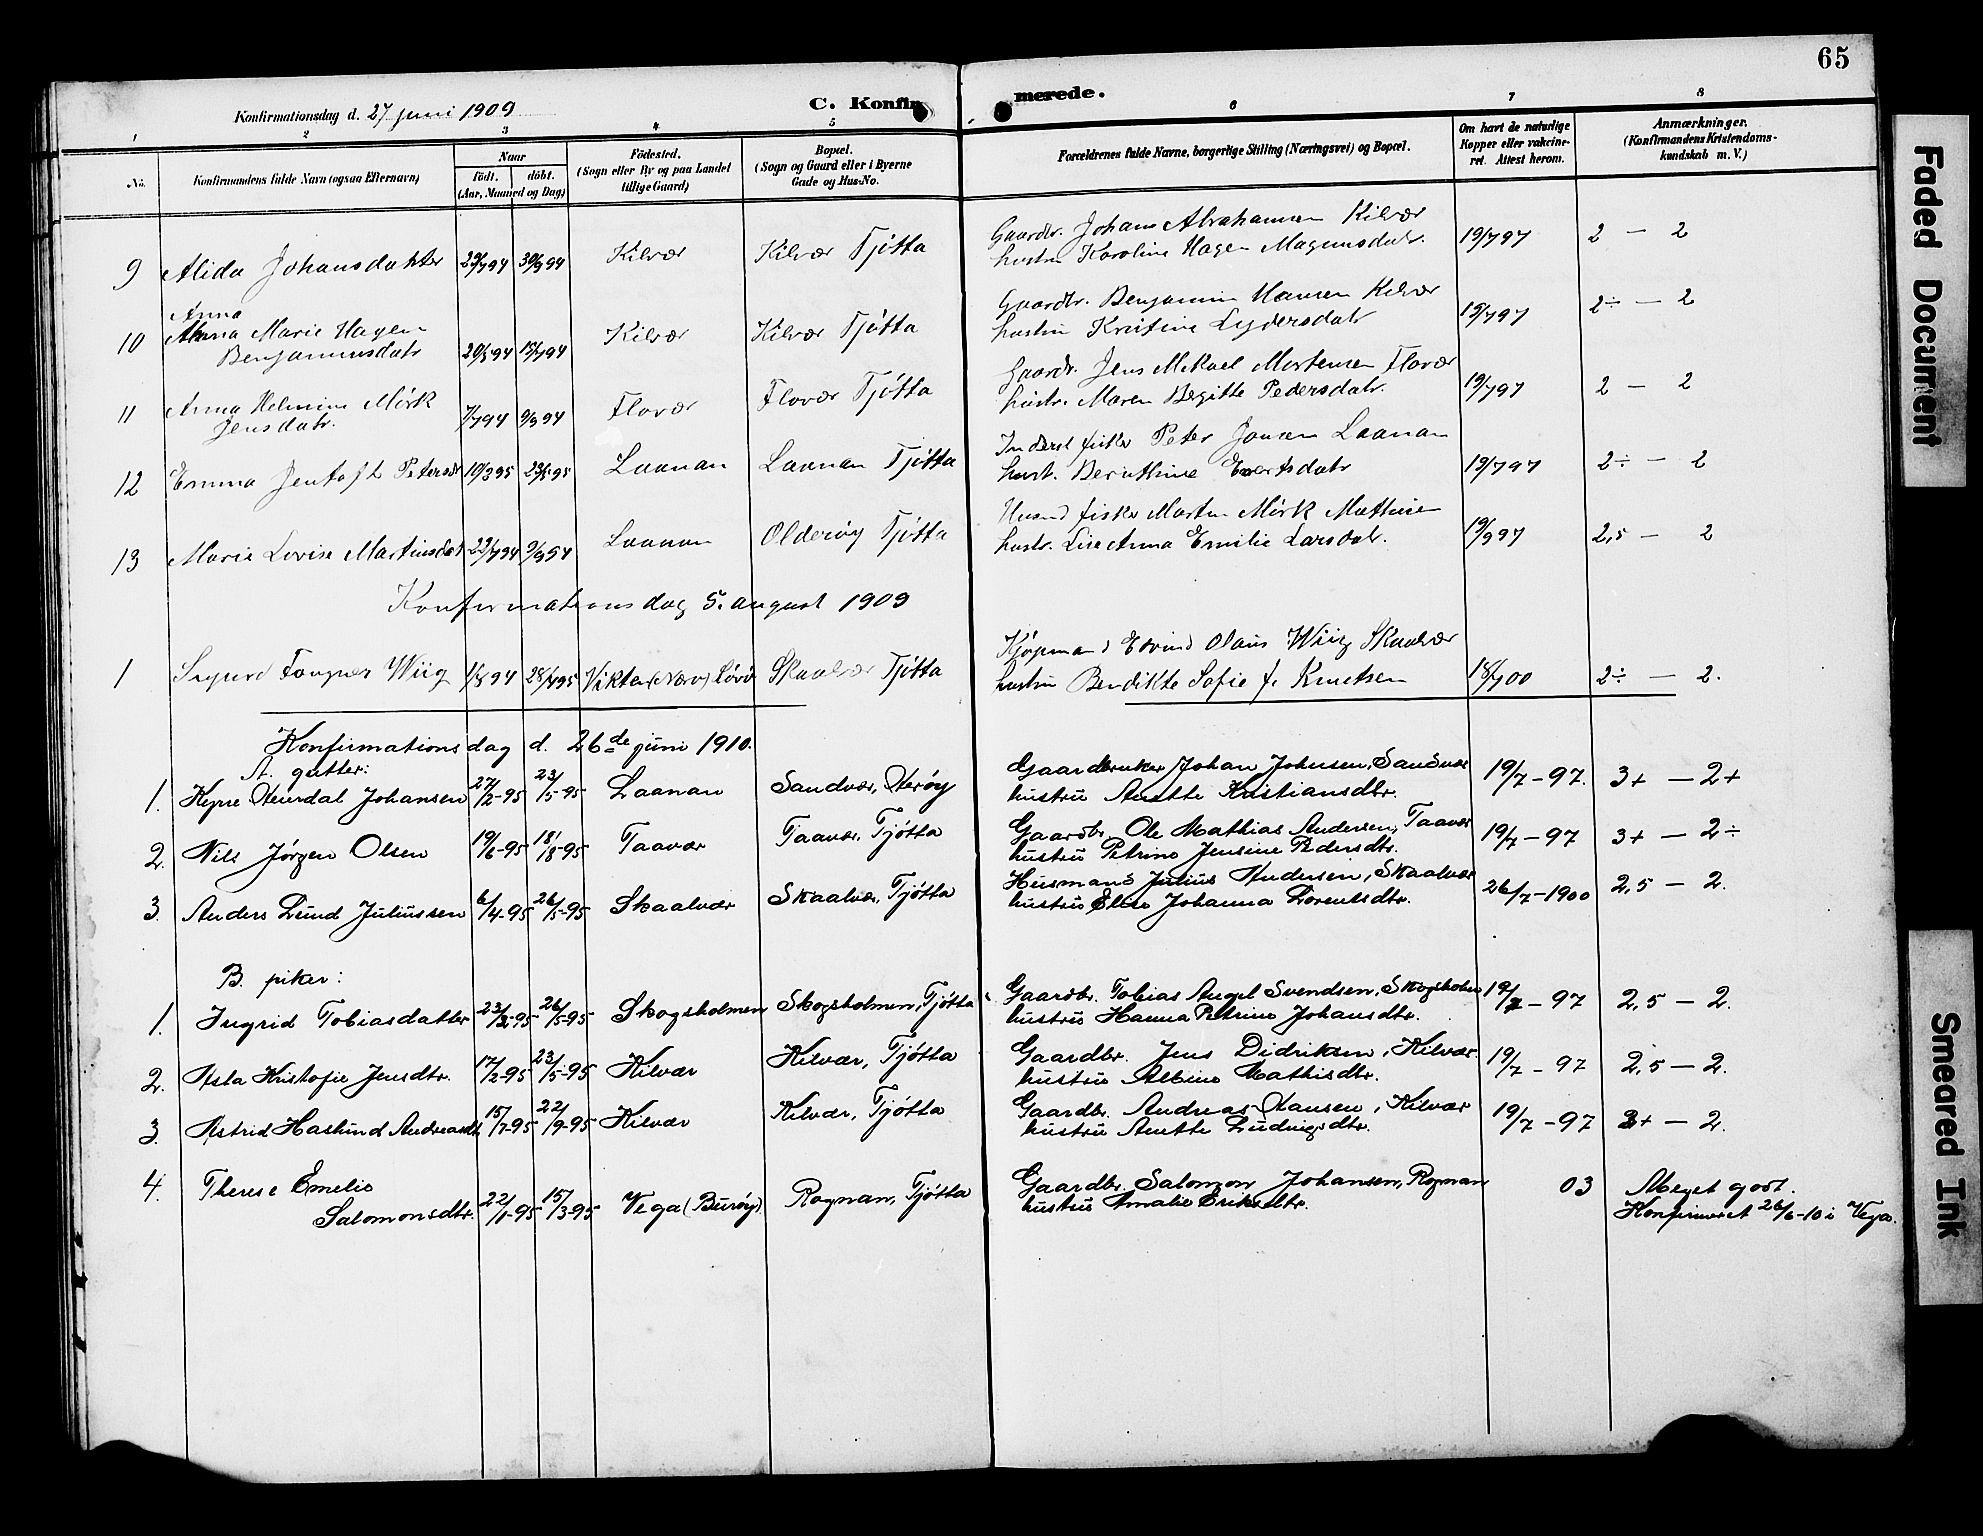 65
Konfirmationsdag d. 27 juni 1909
C. Konfirmerede.
1 2 3 4 5 6 7 8
No.
Konfirmandens fulde Navn (ogsaa Efternavn)
Naar
födt. döbt.
(Aar, Maaned og Dag)
Födested.
(Sogn eller By og paa Landet
tillige Gaard)
Bopæl.
(Sogn og Gaard eller i Byerne
Gade og Hus-No.
Forældrenes fulde Navne, borgerlige Stilling (Næringsvei) og Bopæl.
Om havt de naturlige
Kopper eller vakcine-
ret. Attest herom.
Anmærkninger.
(Konfirmandens Kristendoms-
kundskab m. V.)
9 Alida Johansdatter 29/7 94 30/9 94 Kilvær Kilvær Tjötta Gaardbr. Johans Abrahamsen Kilvær
hustru Karoline Hagen Magnusdatr. 19/7 97 2 — 2
Anna
10 Anna Marie Hagen
Benjaminsdatr 20/5 94 15/7 94 Kilvær Kilvær Tjötta Gaardbr. Benjamin Hansen Kilvær
hustru Kristine Lydersdatr 19/7 97 2÷ — 2
11 Anna Helmine Mörk
Jensdatr. 7/7 94 9/9 94 Flovær Flovær Tjötta Gaardbr. Jens Mikael Mortensen Flovær
hustr. Maren Begitte Pedersdatr. 19/7 97 2 — 2
12 Emma Jentoft Petersdr 10/3 95 23/5 95 Laanan Laanan Tjötta Inderst fisker Peter Jansen Laanan
hust. Bernthine Evertsdatr 19/7 97 2÷ — 2
13 Marie Lovise Martinsdat 22/7 94 9/9 54 Laanan Olderöy Tjötta Husmd fisker Martin Mörk Mathisen
hustr. Lise Anna Emilie Larsdatr. 19/9 97 2,5 — 2
Konfirmationsdag 5. august 1909
1 Sigurd Fougner Wiig 1/8 94 28/4 95 Vikten (Nærö) Skaalvær Tjötta Kjöpmand Edvind Olaus Wiig Skaalvær
hustru Bendikte Sofie f. Knutsen 18/7 00 2÷ — 2.
Konfirmationsdag d. 26de juni 1910.
A. gutter:
1. Heimdal Johansen 27/2-95 23/5-95 Laanan Sandvær, Herøy Gaardbruker Johan Johnsen, Sandvær
hustru Anette Kristiansdtr. 19/7-97. 3+ — 2+
2. Nils Jørgen Olsen 19/6-95 18/8-95 Taavær Taavær, Tjøtta Gaardbr. Ole Mathias Andersen, Taavær
hustru Petrine Jensine Pedersdtr. 19/7-97 3+ — 2÷
3. Anders Lund Juliussen 6/4-95 26/5-95 Skaalvær Skaalvær, Tjøtta Husmand Julius Andersen, Skaalvær
hustru Elise Johanna Lorentsdtr. 26/7-1900 2,5 — 2.
B. piker:
1. Ingrid Tobiasdatter 23/3-95 26/5-95 Skogsholmen Skogsholmen, Tjøtta Gaardbr. Tobias Angel Svendsen, Skogsholm
hustru Hanna Petrine Johansdtr. 19/7-97 2,5 — 2.
2. Asta Kristofie Jensdtr. 17/2-95 23/5-95 Kilvær Kilvær, Tjøtta Gaardbr. Jens Didriksen, Kilvær.
hustru Albine Mathisdtr. 19/7-97 2,5 — 2.
3. Astrid Haslund Andreasdtr 15/7-95 22/9-95 Kilvær Kilvær, Tjøtta Gaardbr. Andreas Hansen, Kilvær
hustru Anette Ludvigsdtr. 19/7-97 3+ — 2.
4. Therese Emelie
Salomonsdtr. 22/1-95 15/3-95 Vega (Burøy). Rognan, Tjøtta Gaardbr. Salomon Johansen, Rognan
hustru Amalie Eriksdtr. 03 Meget godt.
Konfirmeret 26/6-10 i Vega.
Faded Document
Smeared Ink